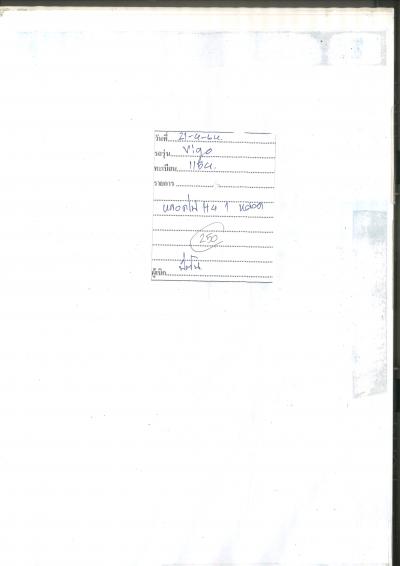 วันที่ 21-4-64
รถรุ่น Vigo
ทะเบียน
รายการ
หลอดไฟ H4 1 หลอด
250
ผู้เบิก